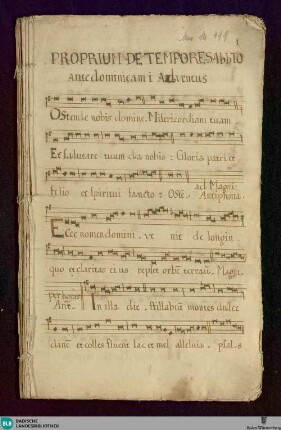 PROPRIUM DE TEMPORE SABBTO
ante dominicam i Adventus
Ostende nobis domine. Misericordiam tuam
Et salutare tuum da nobis : Gloria patri et
filio et spiritui sancto : Oste. ad Magni:
Antiphona.
Ecce nomen domini . ve nit de longin
quo et claritas eius replet orbem terrarum. Magni.
Ant. In illa die . stillabunt montes dulce
dinem et colles fluent lac et mel alleluia . psal. 8
BLB BADISCHE
LANDESBIBLIOTHEK
Baden-Württemberg